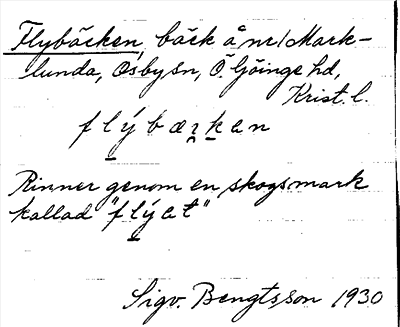 Flybäcken, bäck å nr 1 Mark-
lunda, Osby sn, Ö. Göinge hd,
Krist. l.
flýbæʀken
Rinner genom en skogsmark
kallad "flýet"
Sigv. Bengtsson 1930